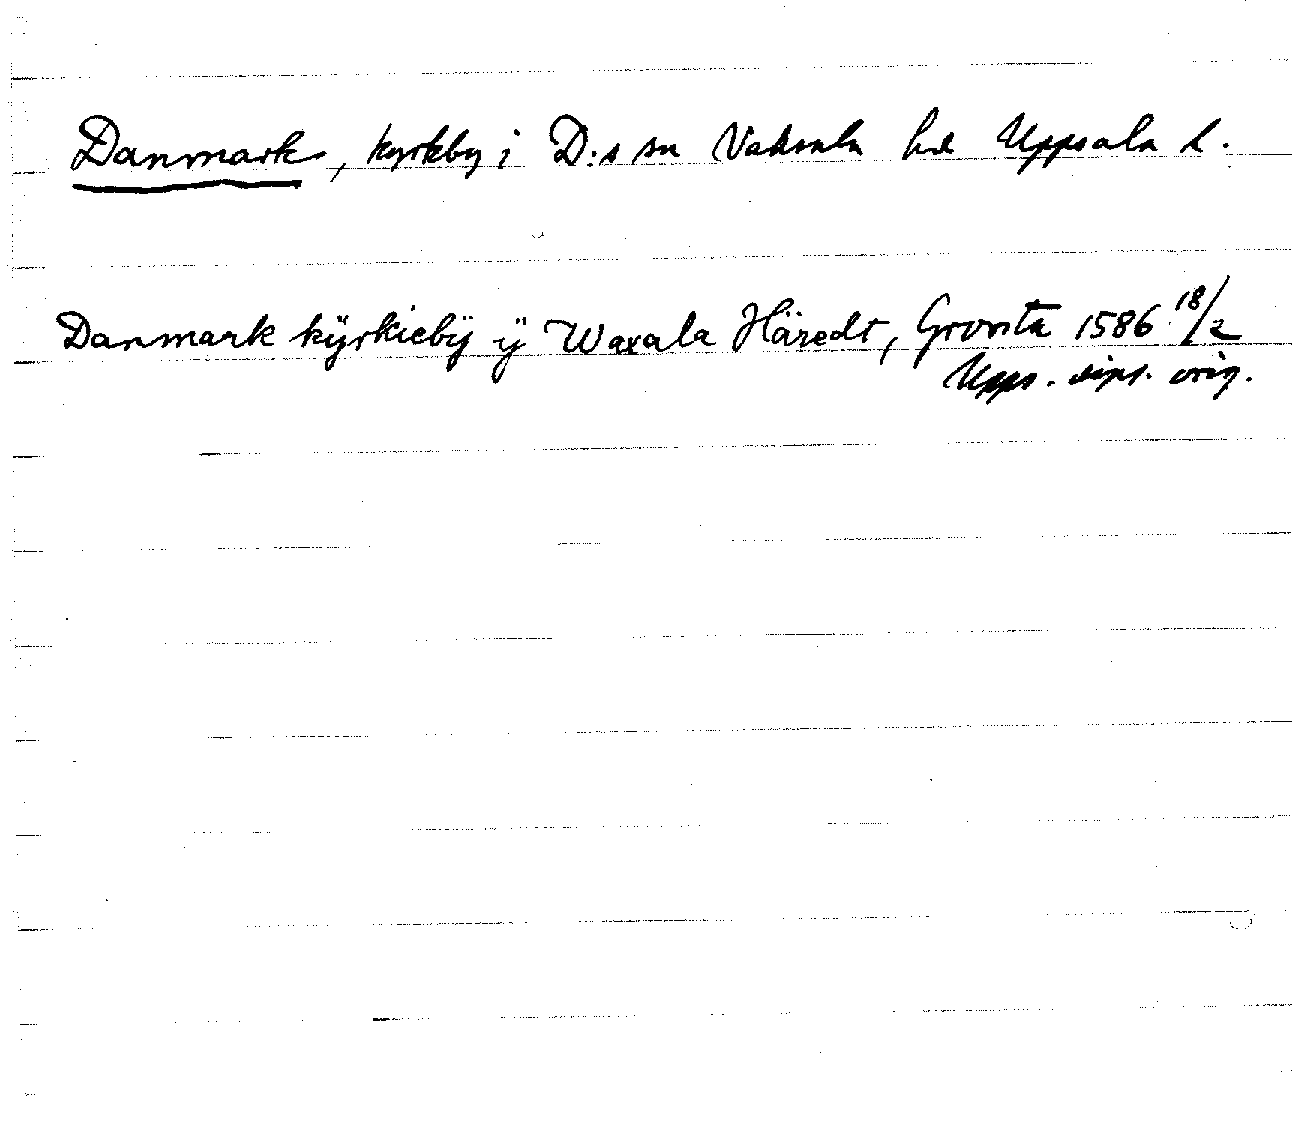 Danmark, kyrkby i D:s sn Vaksala hd Uppsala l.
Danmark kÿrkiebÿ ÿ Waxala Häredt, Grovsta 1586 18/2
Upps. dipl. orig.